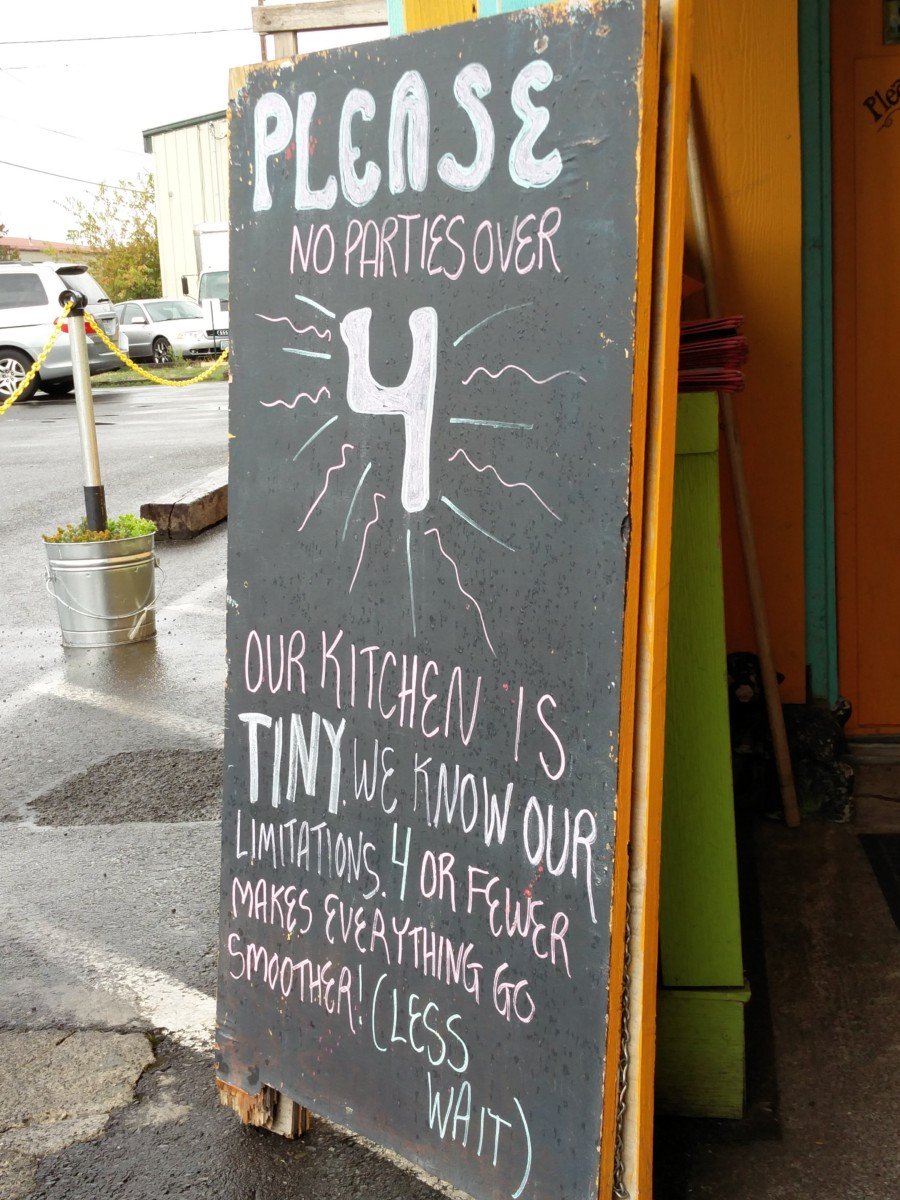 PLEASE
NO PARTIES OVER
4
OUR KITCHEN IS
TINY. WE KNOW OUR
LIMITATIONS. 4 OR FEWER
MAKES EVERYTHING GO
SMOOTHER! (LESS
WAIT)